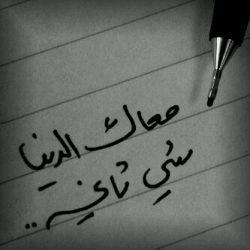 معاك الدنيا
شي ثاني ..